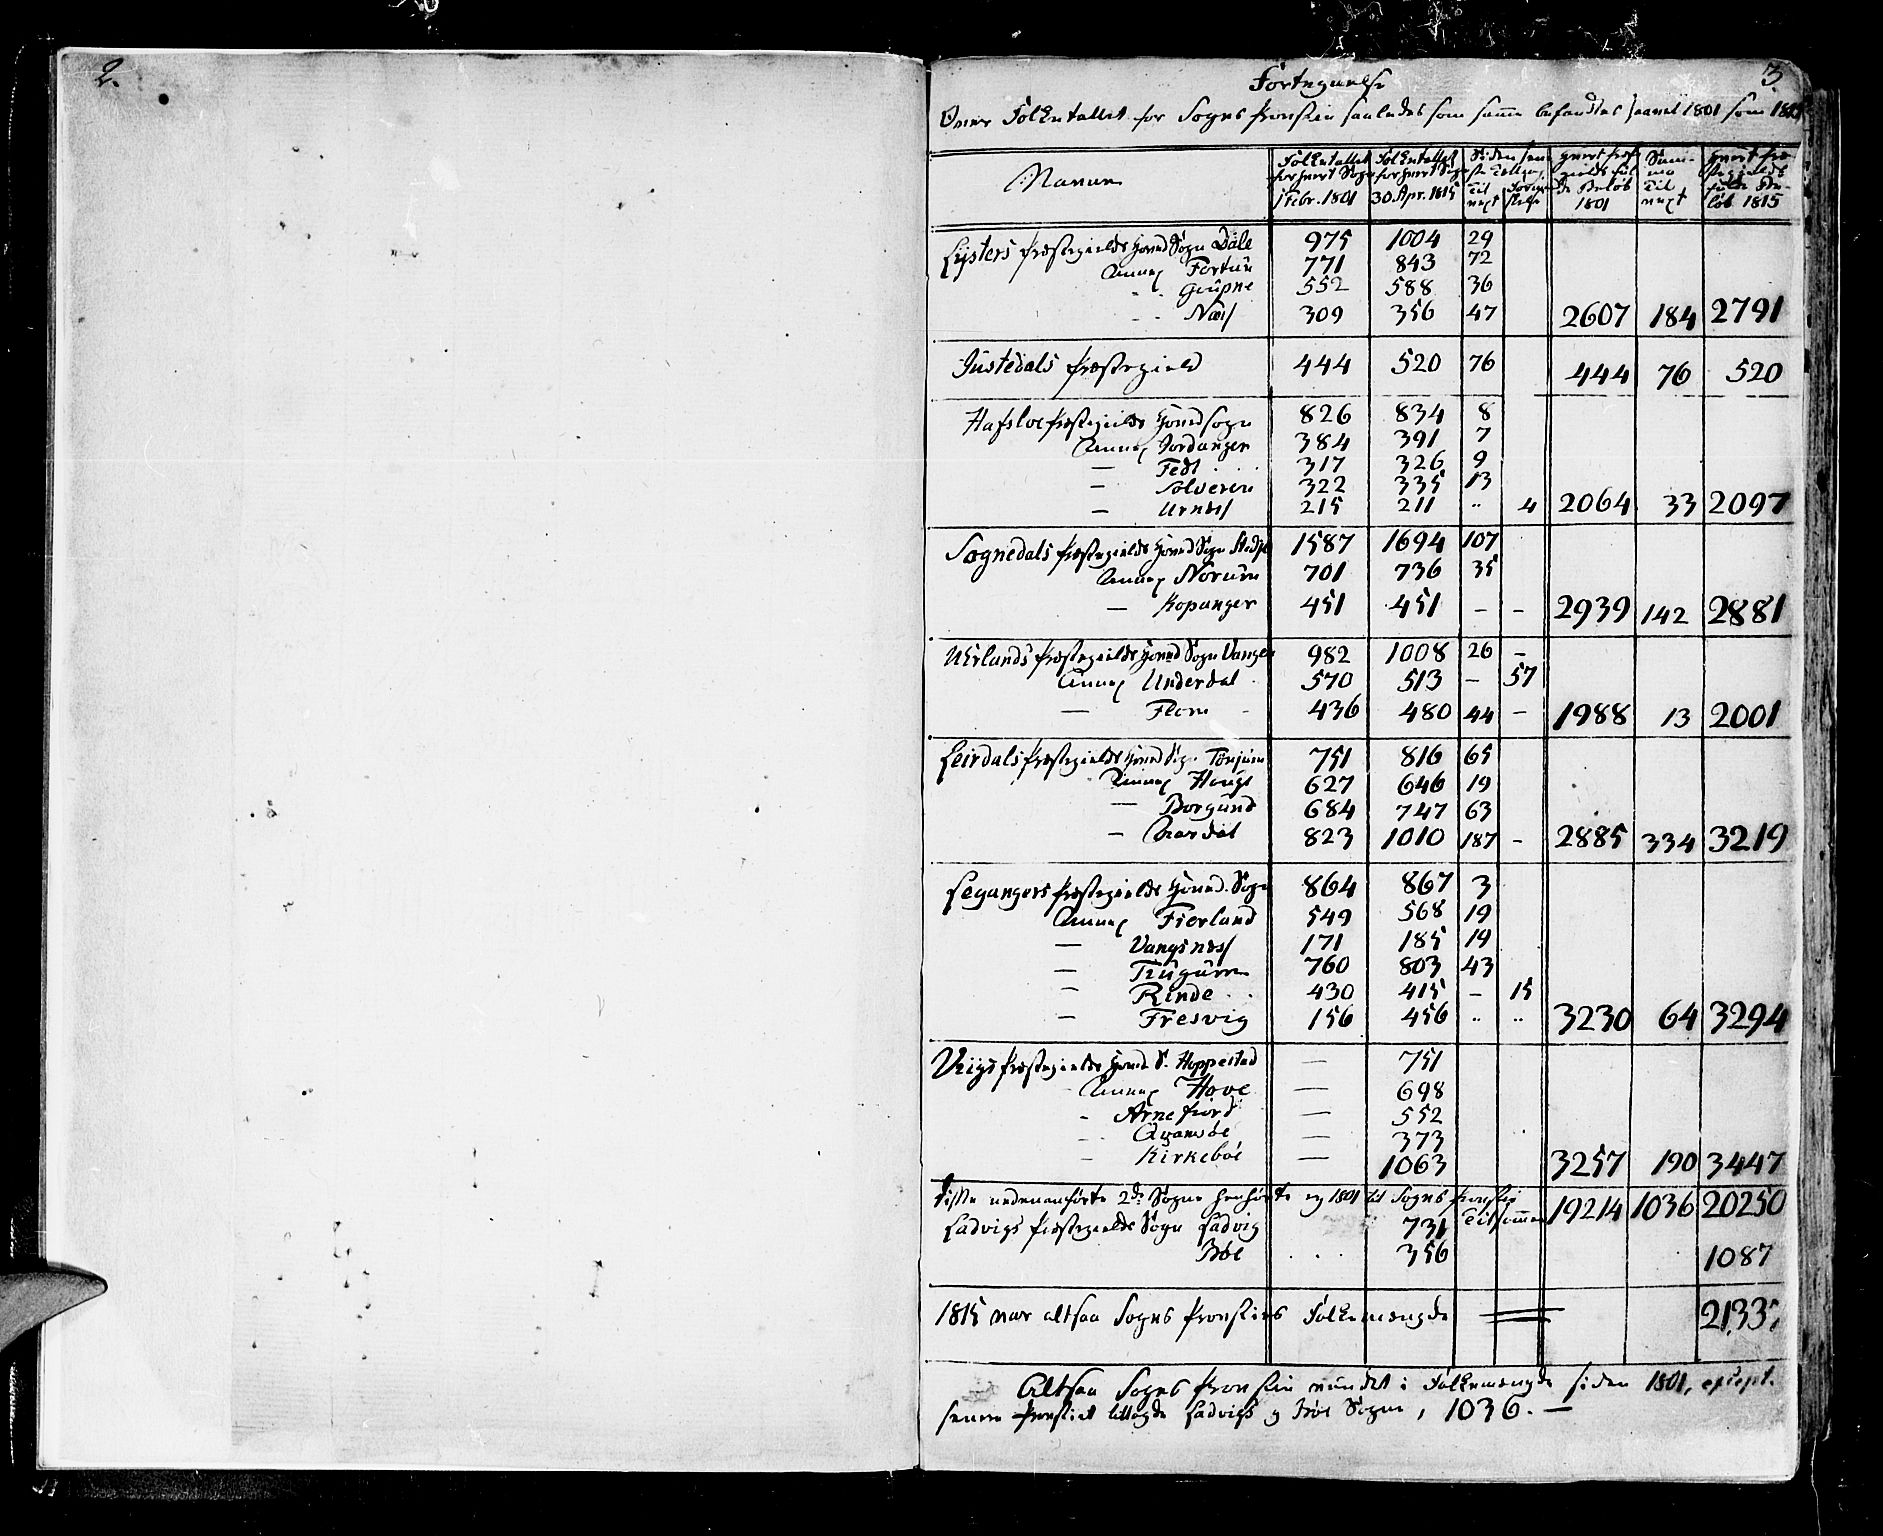 2.
3
Fortegnelse
Over Folketallet for Sogns Provstie saaledes som samme befandtes saavel 1801 som 1815
Navne
Folketallet for hvert Sogn 1 Febr. 1801
Folketallet for hvert Sogn 30 Apr. 1815
Siden sen- ste Tælling
Til vext
Formin- skelse
Hvert Præste- gields ful- de Beløb 1801
Sum- ma Til vext
Hvert Præ- stegields fulde Be- løb 1815
Lysters Præstegields Hoved Sogn Dale 975 1004 29
Annex Fortun 771 843 72
- - Gaupne 552 588 36
- - Næss 309 356 47 2607 184 2791
Justedals Præstegield 444 520 76 444 76 520
Hafsloe Præstegields Hovedsogn 826 834 8
Annex Jordanger 384 391 7
— Fedt 317 326 9
— Solveren 322 335 13
— Urness 215 211 .. 4 2064 33 2097
Sognedals Præstegields Hoved Sogn Stedje 1587 1694 107
Annex Norum 701 736 35
— Kopanger 451 451 - - 2939 142 2881
Urlands Præstegields Hoved Sogn Vangen 982 1008 26 -
Annex Underdal 570 513 - 57
— Flom 436 480 44 - 1988 13 2001
Leirdals Præstegields Hoved Sogn Tonjum 751 816 65
Annex Hougs 627 646 19
— Borgund 684 747 63
— Aardal 823 1010 187 - 2885 334 3219
Leganger Præstegields Hoved Sogn 864 867 3
Annex Fierland 549 568 19
— Vangsness 171 185 14
— Tiugum 760 803 43
— Rinde 430 415 - 15
— Fresvig 156 456 .. .. 3230 64 3294
Viigs Præstegields Hoved S. Hoppestad — 751
Annex Hove — 698
- Arnefiord — 552
- Qvamsøe — 373
- Kirkebøe — 1063 3257 190 3447
Disse nedenanførte 2de Sogne henhørte ej 1801 til Sogns Provstie Tilsammen 19214 1036 20250
Ladvigs Præstegields Sogn Ladvig 731
Bøe .... 356 1087
1815 var altsaa Sogns Provsties Folkemængde 2133
Altsaa Sogns Provstie vundet i Folkemængde siden 1801, except.
senere Provstiet tillagde Ladvigs og Bøe Sogne, 1036. —